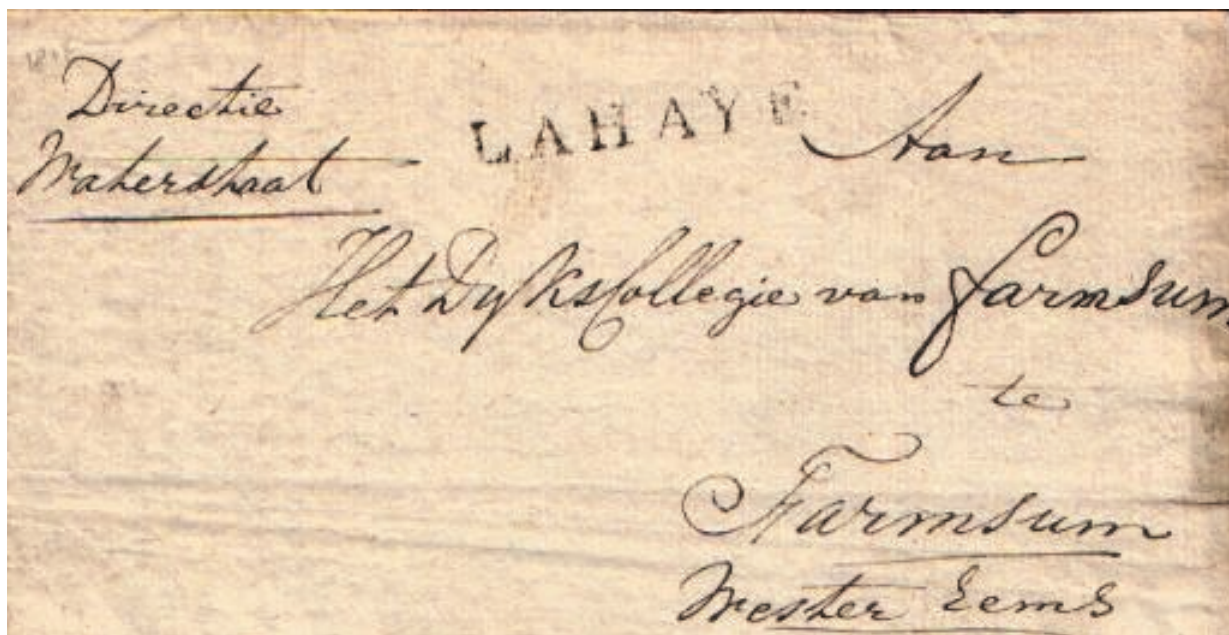 Directie
Waterstaat
LAHAYE
Aan
Het DyksCollegie van farmsum
te
Farmsum
Wester Eems